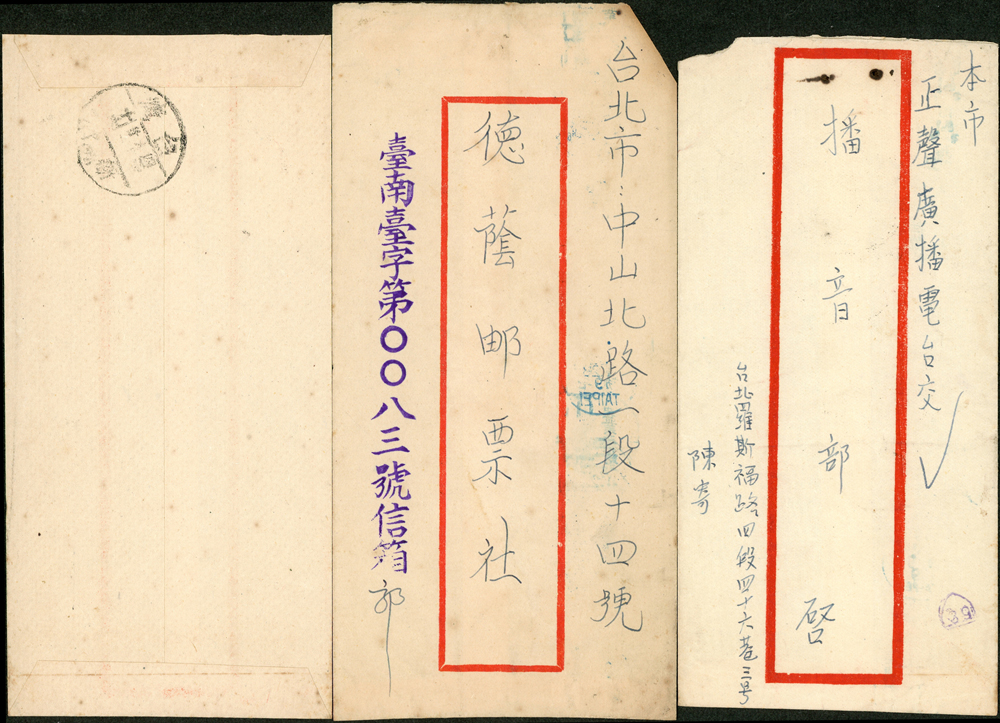 台北市:中山北路一段十四號
德蔭邮票社
臺南臺字第〇〇八三號信箱
郭
TAIPEI
本市
正聲廣播電台交
播音部啓
台北羅斯福路四段四十六巷三号
陳寄